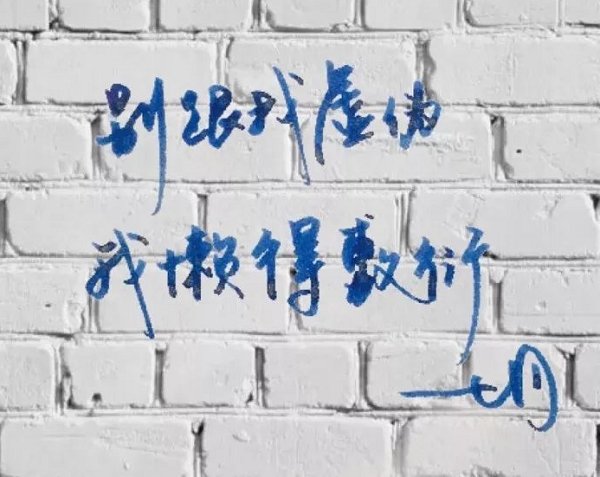 别跟我虚伪
我懒得敷衍
七月